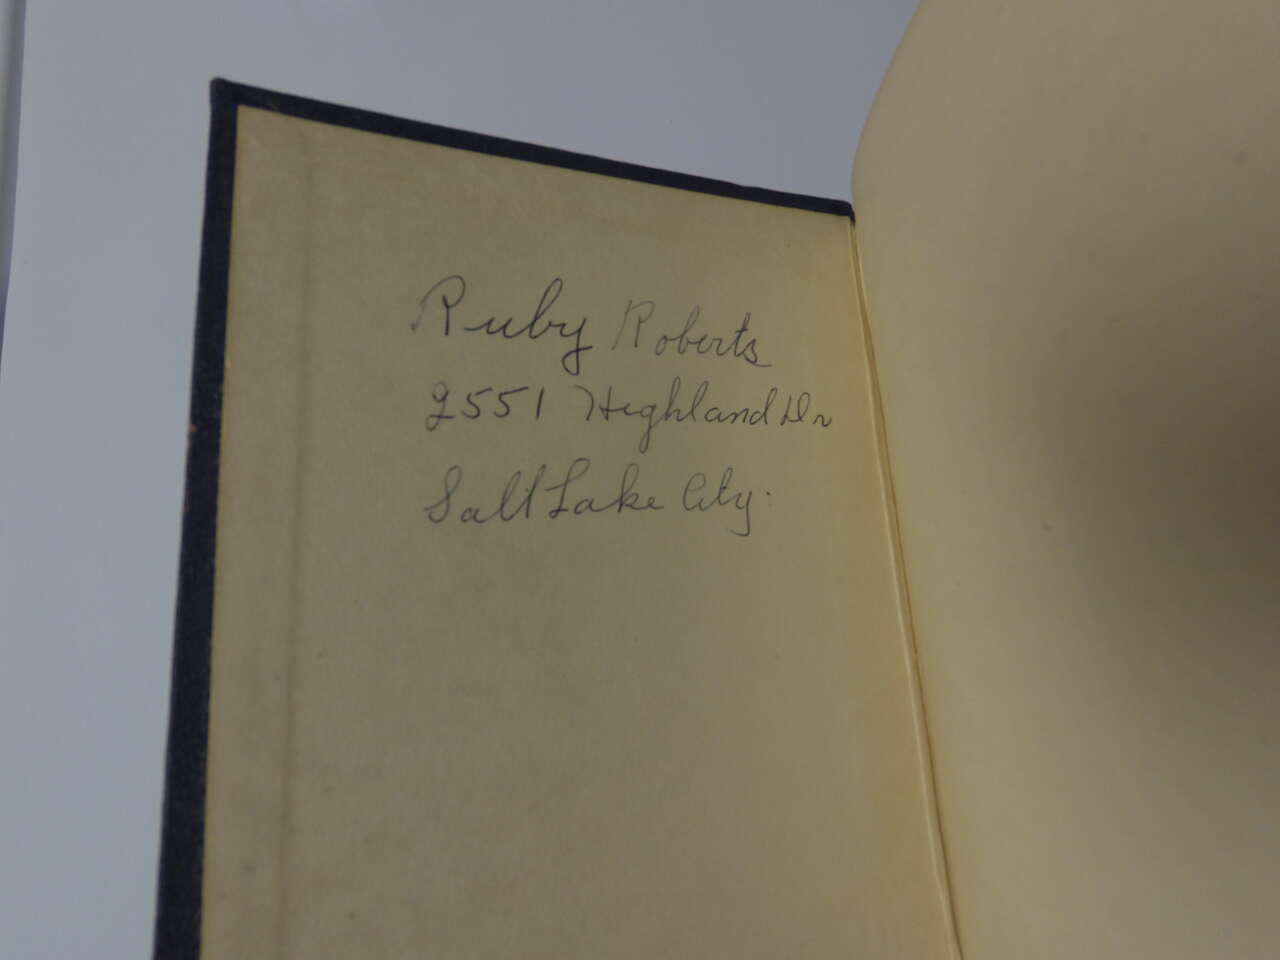 Ruby Roberts
2551 Highland Dr
Salt Lake City.